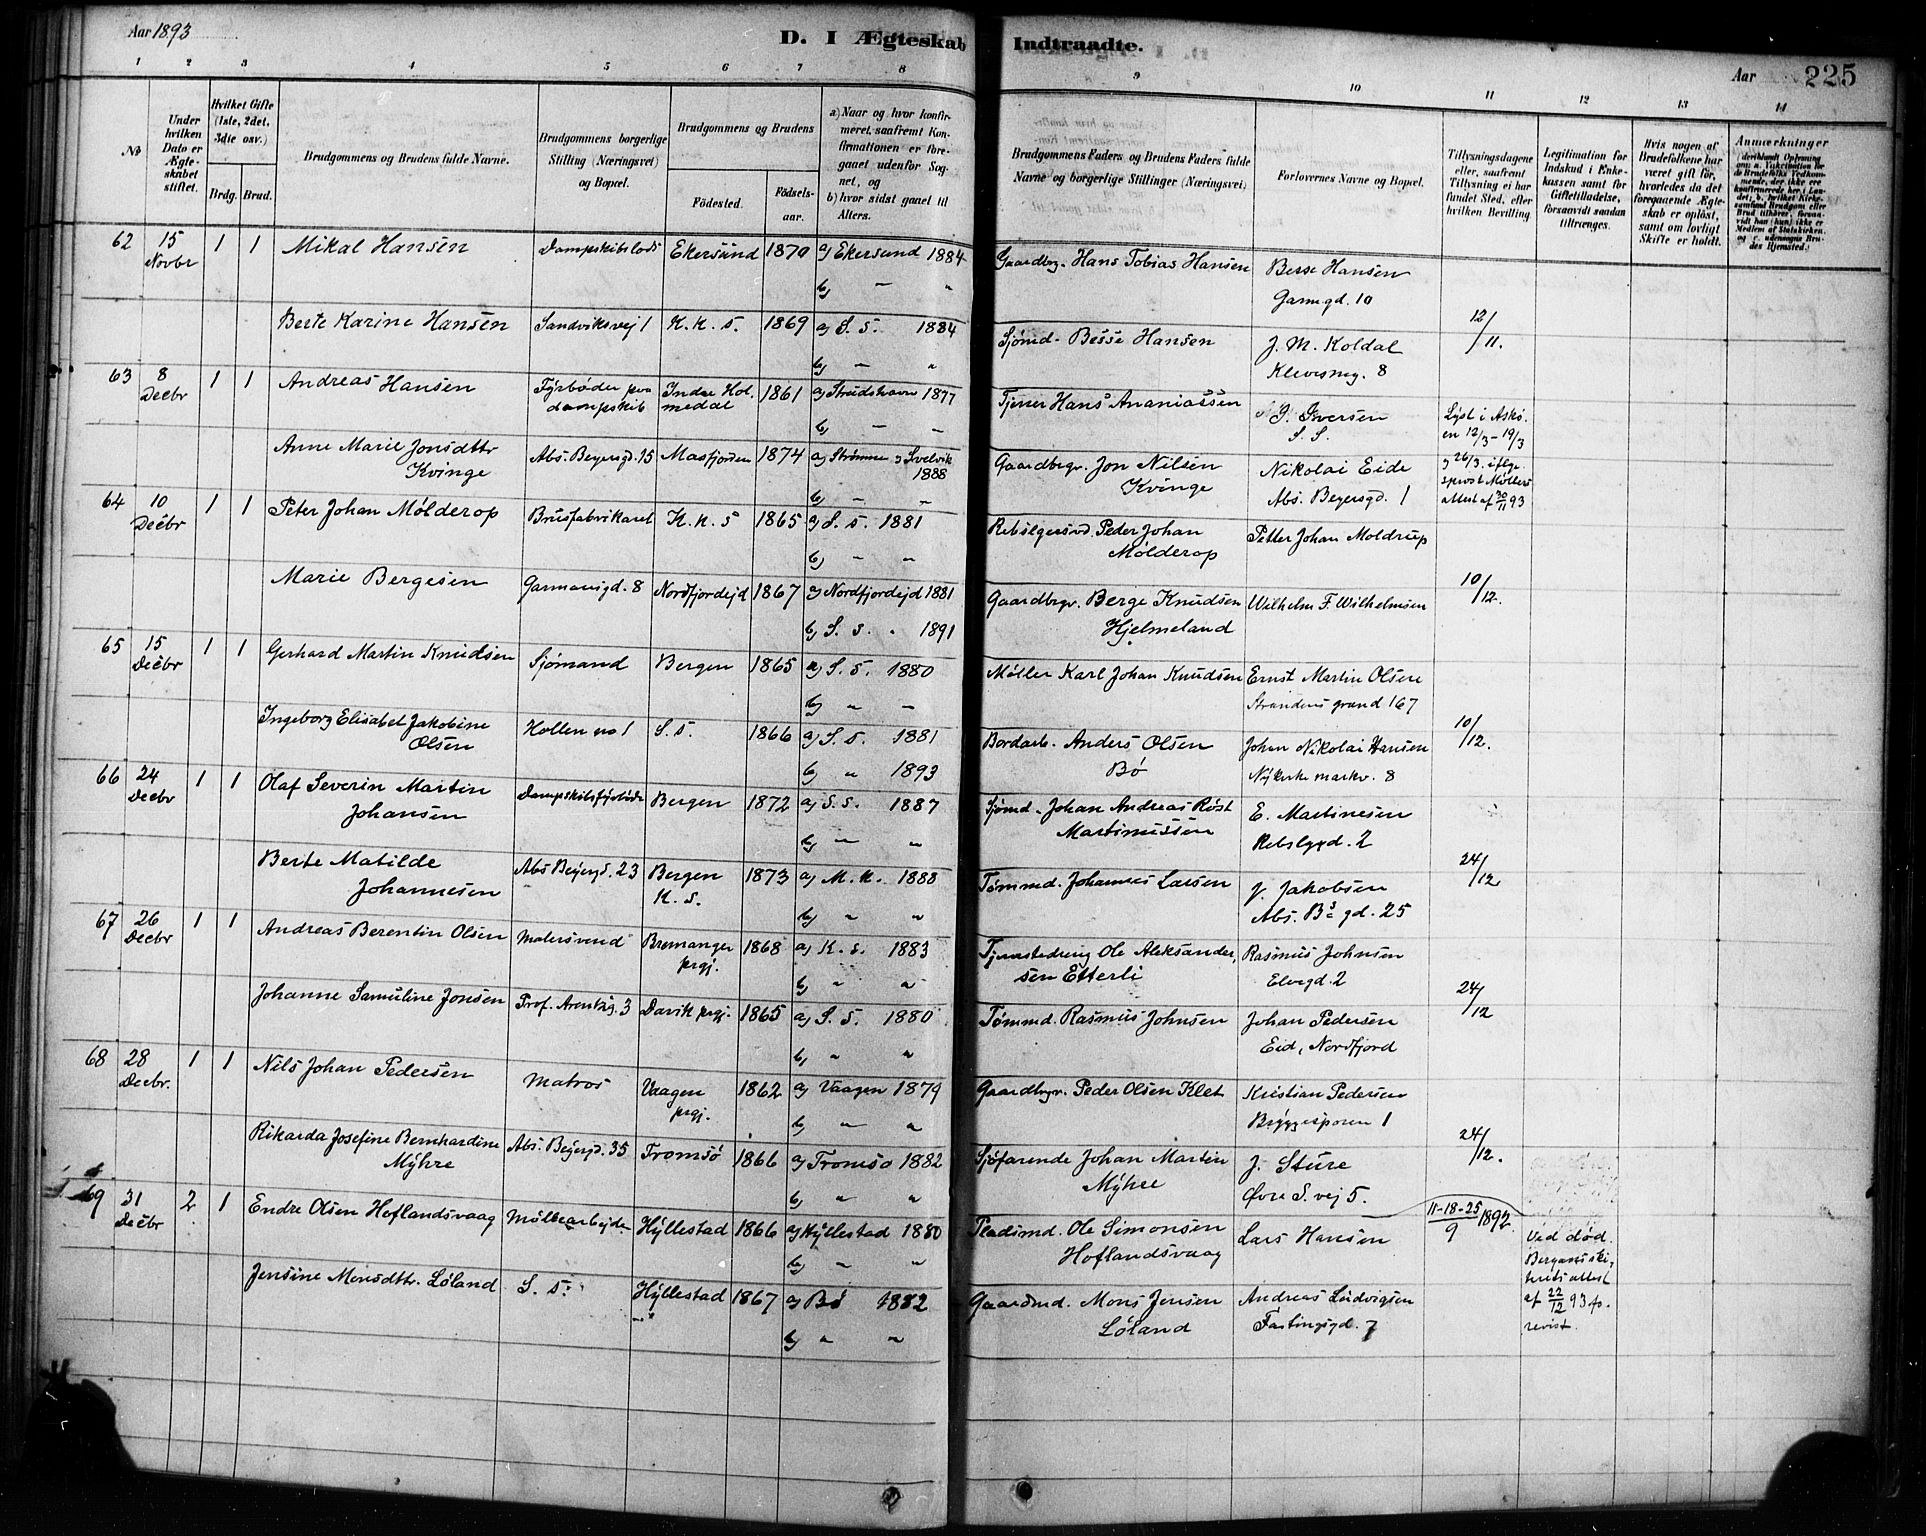 Aar 1893
D. I Ægteskab Indtraadte.
Aar 225
1 2 3 4 5 6 7 8 9 10 11 12 13 14
№
Under hvilken Dato er Ægteskabet stiftet.
Hvilket Gifte (1ste, 2det, 3die osv.)
Brdg. Brud.
Brudgommens og Brudens fulde Navne.
Brudgommens borgerlige Stilling (Næringsvei) og Bopæl.
Brudgommens og Brudens
Fødested. Fødsels-aar.
a) Naar og hvor konfirmeret, saafremt Konfirmationen er foregaaet udenfor Sognet, og
b) hvor sidst gaaet til Alters.
Brudgommens Faders og Brudens Faders fulde Navne og borgerlige Stillinger (Næringsvei)
Forlovernes Navne og Bopæl.
Tillysningsdagene eller, saafremt Tillysning ei har fundet Sted, efter hvilken Bevilling
Legitimation for Indskud i Enkekassen samt for Giftetilladelse, forsaavidt saadan tiltrænges.
Hvis nogen af Brudefolkene har været gift før, hvorledes da det foregaaende Ægteskab er opløst, samt om lovligt Skifte er holdt.
Anmærkninger
62 15 Novbr 1 1 Mikal Hansen Dampskibslods Ekersund 1870 a) Ekersund 1884 Gaardbg. Hans Tobias Hansen Besse Hansen
b) " " Garmgd. 10
Berte Karine Hansen Sandviksvej 1 K. k. s. 1869 a) S. s. 1884 Sjømd. Besse Hansen J. M. Koldal 12/11.
b) " " 8
63 8 Decbr 1 1 Andreas Hansen Fyrbøder paa dampskib Indre Holmedal 1861 a) 1877 Tjener Hans Ananiassen Iversen
b) " " S. S.
Anne Marie Jonsdttr Kvinge Abs. Beyersgd. 15 Masfjorden 1874 a) Strømmen og Svelvik 1888 Gaardbrgr. Jon Nilsen Kvinge Nikolai Eide
b) " " Abs. Beyersgd. 1
Lyst i Askøen 12/3 - 19/3 og 26/3. ifølge sprost Møllers attest af 30/11 93
64 10 Decbr 1 1 Peter Johan Mølderop Brusfabrikant K. k. s 1865 a) S. s. 1881 Peder Johan Mølderop Petter Johan Moldrup
b) " "
Marie Bergesen Garmansgd. 8 Nordfjordejd 1867 a) Nordfjordejd 1881 Gaardbrgr. Berge Knudsen Hjelmeland Wilhelm F. Wilhelmsen 10/12.
b) S. s. " 1891
65 15 Decbr 1 1 Gerhard Martin Knudsen Sjømand Bergen 1865 a) S. s. 1880 Møller Karl Johan Knudsen Ernst Martin Olsen
b) " " 167
Ingeborg Elisabet Jakobine Olsen Hollen no 1 S. s. 1866 a) S. s. 1881 Bordarb. Anders Olsen Bø Johan Nikolai Hansen 10/12.
b) " 1893 Nykirke markv. 8
66 24 Decbr 1 1 Olaf Severin Martin Johansen Dampskibsfyrbøder Bergen 1872 a) S. s. 1887 Sjømd. Johan Andreas Røst Martinussen E. Martinesen
b) " " 2
Berte Matilde Johannesen Abs Beyersgd. 23 Bergen K. s. 1873 a) M. k. 1888 Tømmd. Johannes Larsen J. Jakobsen 24/12
b) " " Abs. Bs gd. 25
67 26 Decbr 1 1 Andreas Berentin Olsen Malersvend Bremanger prgj. 1868 a) K. s. 1883 Ole Aleksandersen Etterli Rasmus Johnsen
b) " " Elvegd. 2
Johanne Samuline Jonsen 3 Davik prgj. 1865 a) S. s. 1880 Tømmd. Rasmus Johnsen Johan Pedersen 24/12
b) " " Eid, Nordfjord
68 28 Decbr. 1 1 Nils Johan Pedersen Matros Vaagen prgj. 1862 a) Vaagen 1879 Gaardbrgr. Peder Olsen Klet Kristian Pedersen
b) " " Bryggesporen 1
Rikarda Josefine Bernhardine Myhre Abs. Beyersgd. 35 Tromsø 1866 a) Tromsø 1882 Sjøfarende Johan Martin Myhre J. Sture 24/12.
b) " " Øvre S. vej 5.
69 31 Decbr 2 1 Endre Olsen Hoflandsvaag Møllearbejder Hyllestad 1866 a) Hyllestad 1880 Pladsmd. Ole Simonsen Hoflandsvaag Lars Hansen 11-18-25/9 1892
b) " "
Jensine Monsdttr. Løland S. s. Hyllestad 1867 a) Bø 1882 Gaardmd. Mons Jensen Løland Andreas Ludvigsen
b) " " Fastingsgd. 7
Ved død. Bergens skifterets attest af 22/12 93 fo- revist.